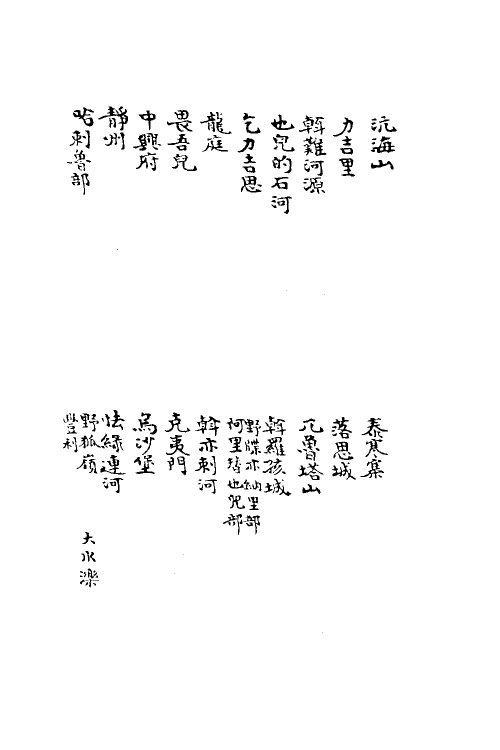 沆海山
力吉里
斡難河源
也兒的石河
乞力吉思
龍庭
畏吾兒
中興府
靜州
哈刺魯部
泰寒寨
落思城
兀魯塔山
斡羅孩城
野牒亦納里部
阿里替也兒部
斡亦刺河
克夷門
烏沙堡
怯綠連河
野狐嶺
大水濼
豐利